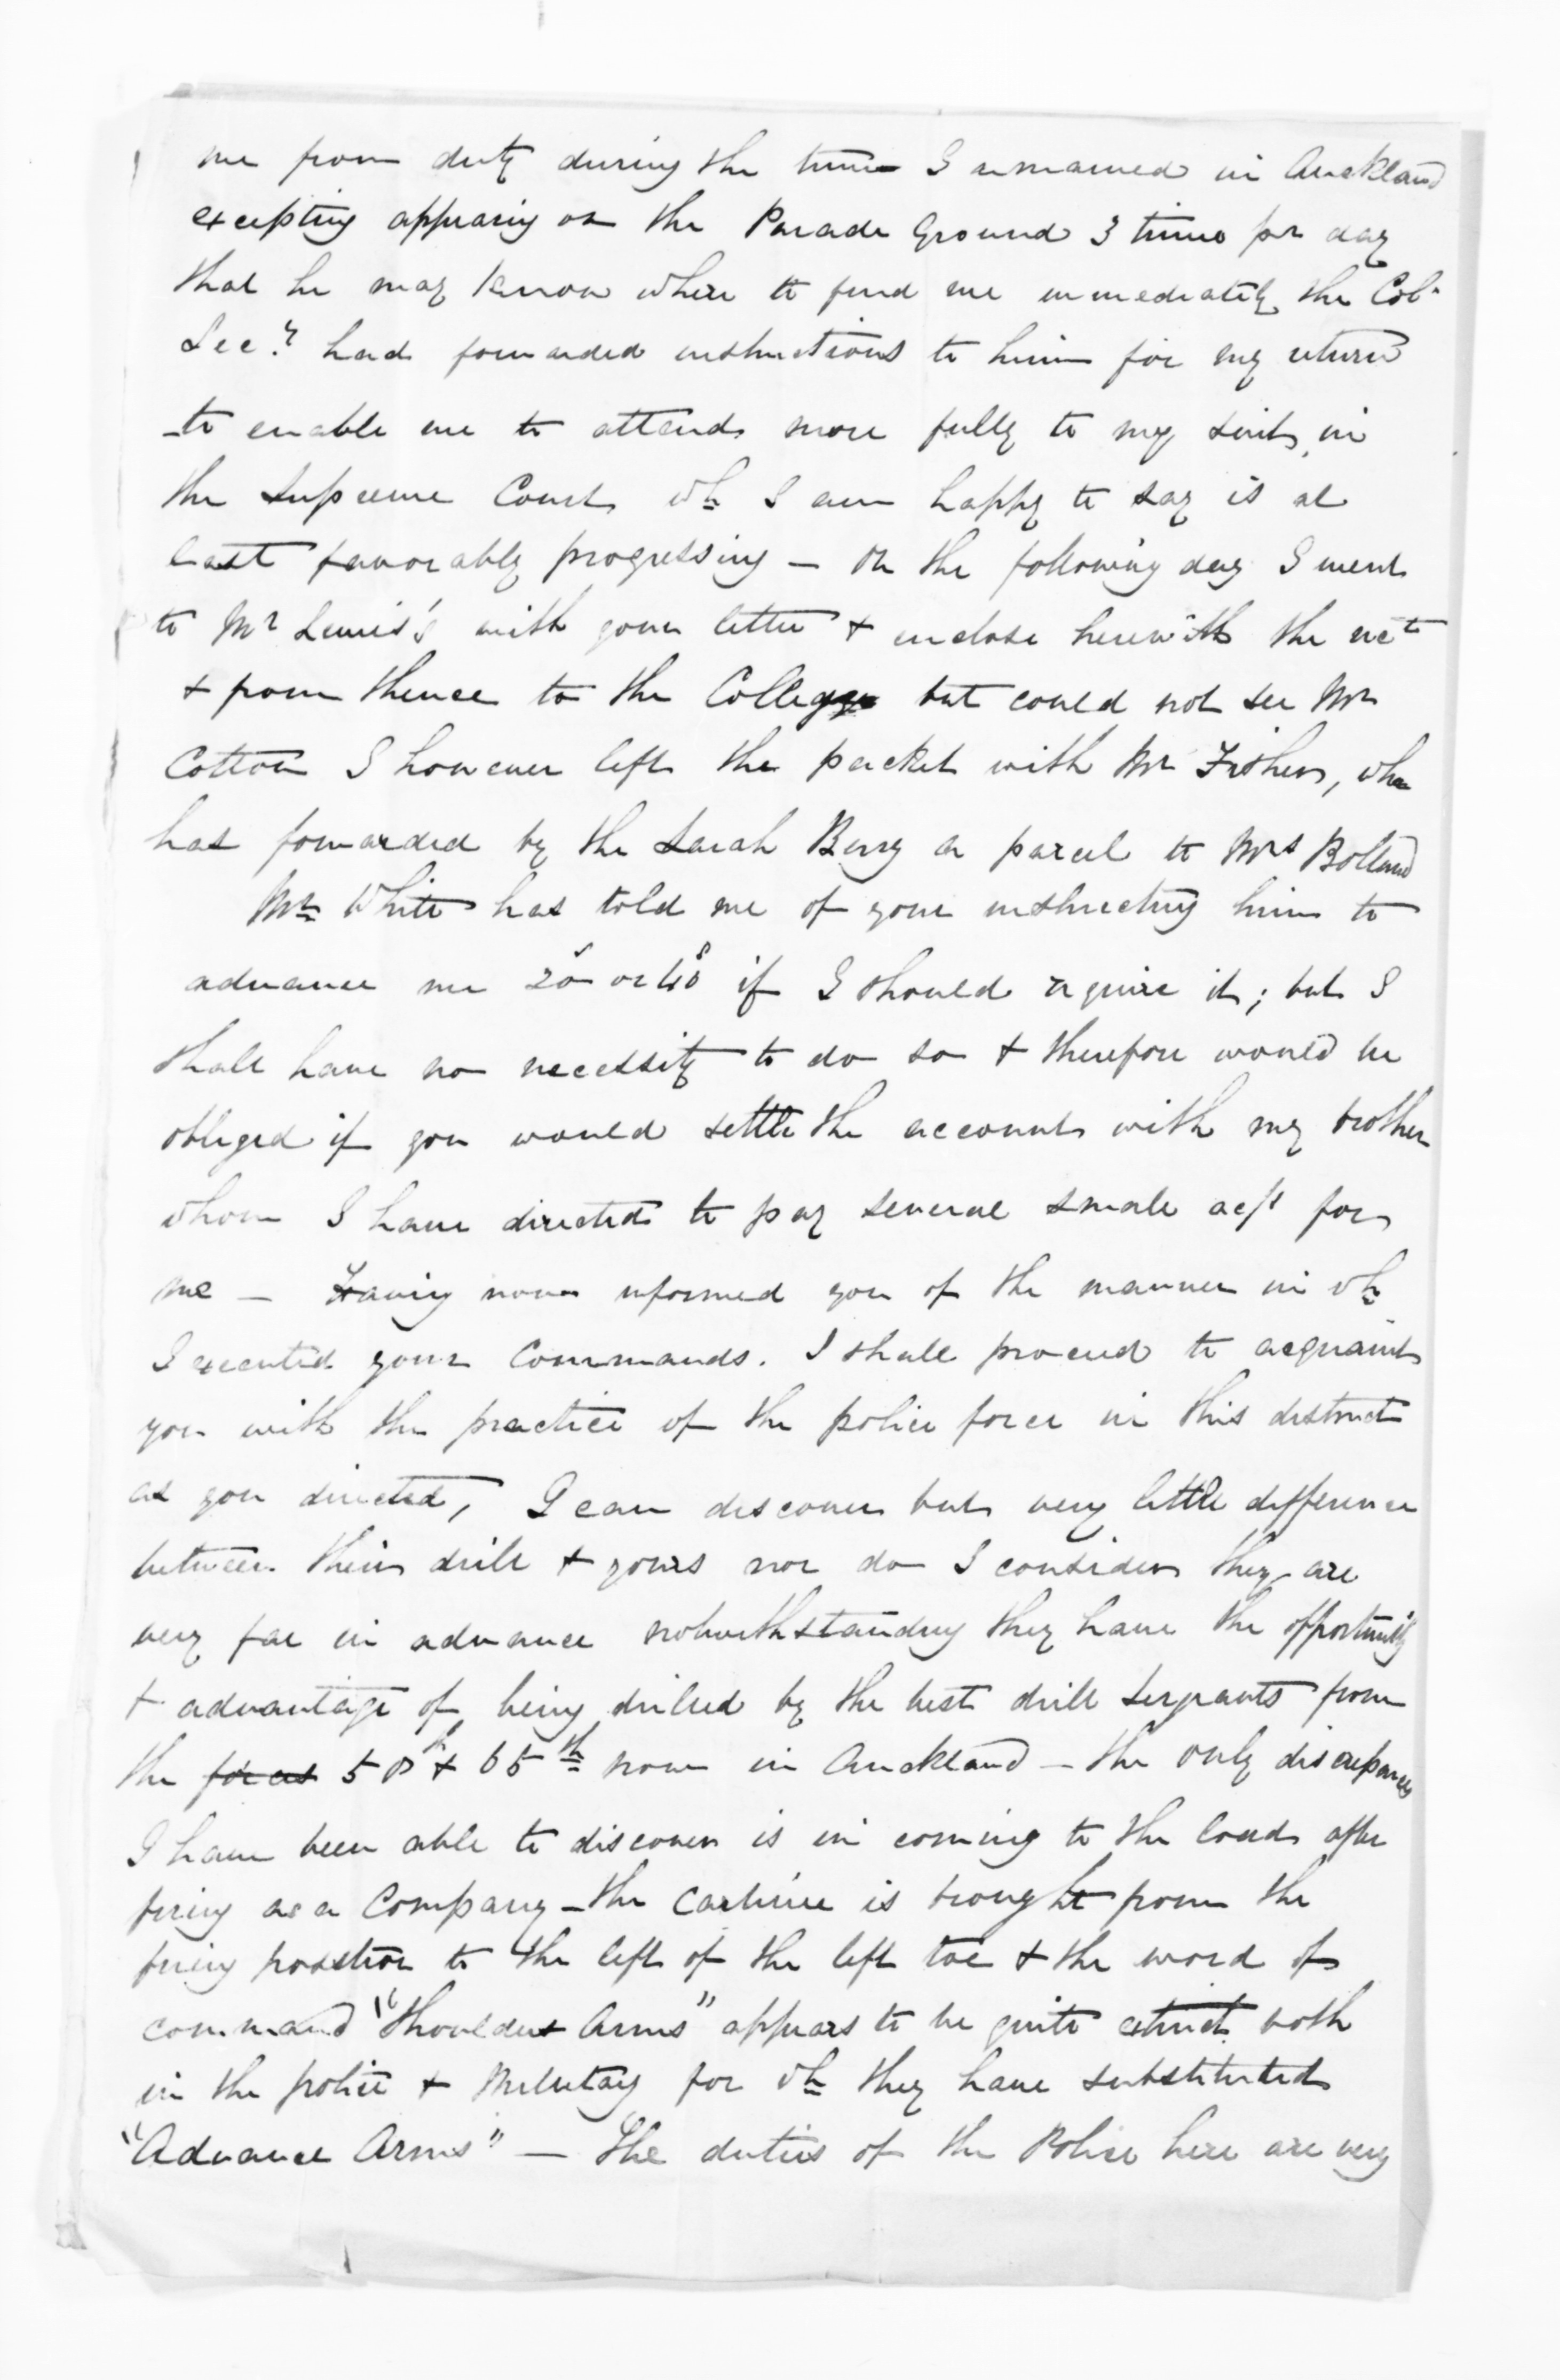 me from duty during the time I remained in Auckland
excepting appearing on the Parade Ground 3 times per day
that he may know where to find me immediately the Col.
Secy. had forwarded instructions to him for my return
to enable me to attend more fully to my suit in
the Supreme Court wh I am happy to say is at
last favorably progressing — On the following day I went
to Mr Lewis's with your letter & enclose herewith the rect
& from thence to the College but could not see Mr
Cotton I however left the packet with Mr Fisher, who
has forwarded by the Sarah Berry a parcel to Mrs Bolland
Mr White has told me of your instructing him to
advance me 20s or 40s if I should require it; but I
shall have no necessity to do so & therefore would be
obliged if you would settle the account with my brother
whom I have directed to pay several small ac/s for
me — Having now informed you of the manner in wh
I executed your Commands. I shall proceed to acquaint
you with the practice of the police force in this district
as you directed, I can discover but very little difference
between their drill & yours nor do I consider they are
very far in advance notwithstanding they have the opportunity
& advantage of being drilled by the best drill sergeants from
the forces 58th & 65th now in Auckland — the only discrepancy
I have been able to discover is in coming to the load after
firing as a Company — the Carbine is brought from the
firing position to the left of the left toe & the word of
command "Shoulder Arms" appears to be quite extinct both
in the police & Military for wh they have substituted
"Advance Arms" — The duties of the Police here are very